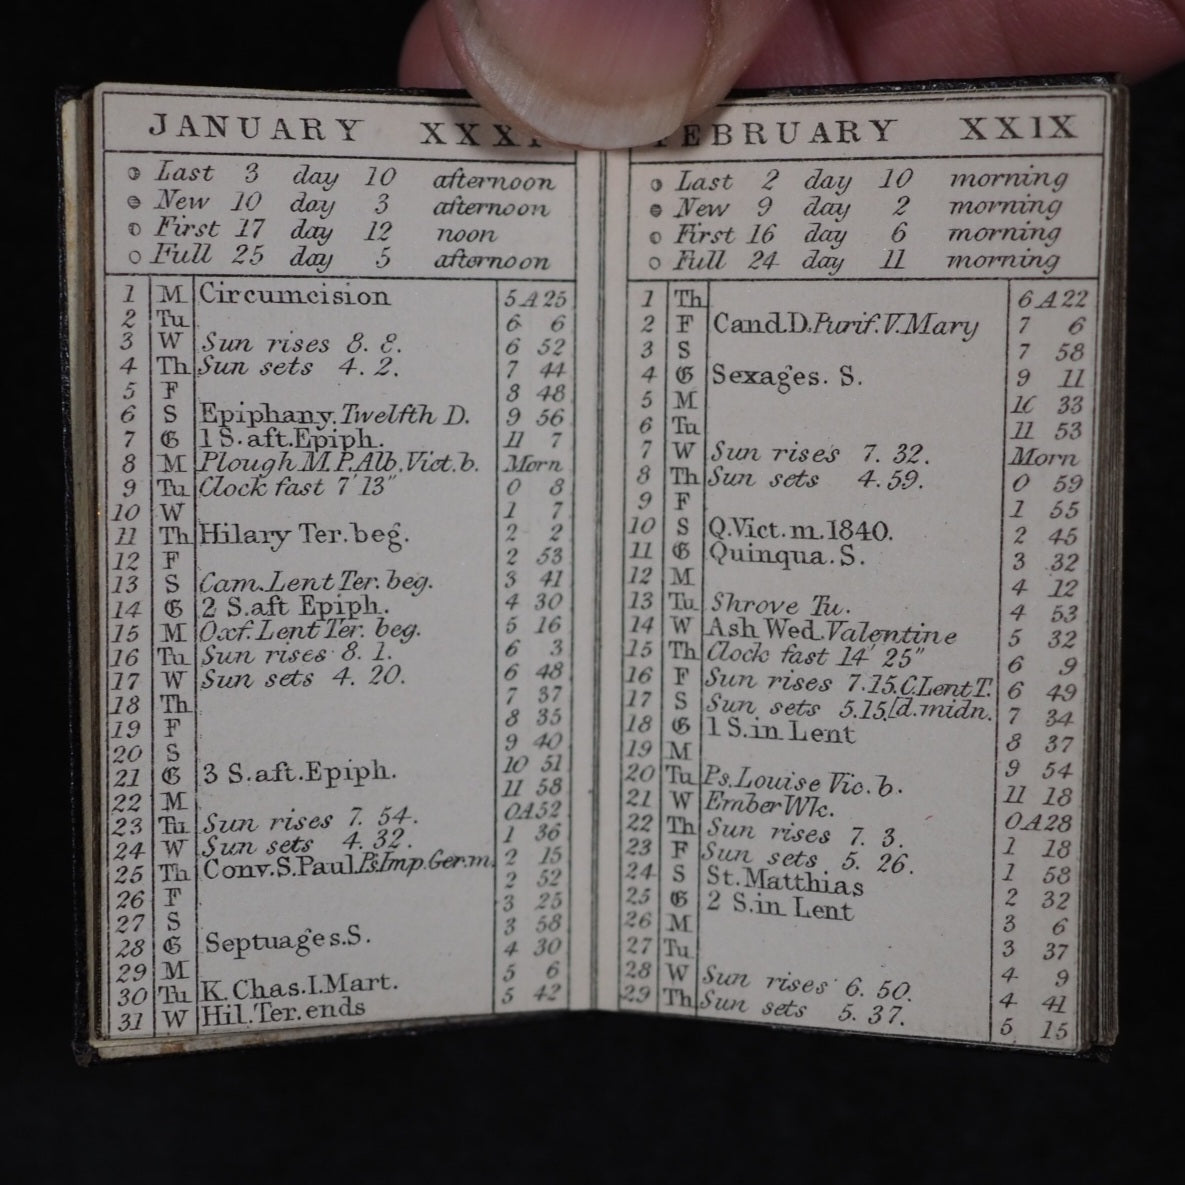 JANUARY XXX
Last 3 day 10 afternoon
New 10 day 3 afternoon
First 17 day 12 noon
Full 25 day 5 afternoon
1 M Circumcision 5 A 25
2 Tu 6 6
3 W Sun rises 8. 8. 6 52
4 Th Sun sets 4. 2. 7 44
5 F 8 48
6 S Epiphany. Twelfth D. 9 56
7 G 1 S. aft. Epiph. 11 7
8 M Plough M. P. Alb. Vict. b. Morn
9 Tu Clock fast 7' 13" 0 8
10 W 1 7
11 Th Hilary Ter. beg. 2 2
12 F 2 53
13 S Cam. Lent Ter. beg. 3 41
14 G 2 S. aft Epiph. 4 30
15 M Oxf. Lent Ter. beg. 5 16
16 Tu Sun rises 8. 1. 6 3
17 W Sun sets 4. 20. 6 48
18 Th 7 37
19 F 8 35
20 S 9 40
21 G 3 S. aft. Epiph. 10 51
22 M 11 58
23 Tu Sun rises 7. 54. 0 A 52
24 W Sun sets 4. 32. 1 36
25 Th Conv. S. Paul. Ps. Imp. Ger. m. 2 15
26 F 2 52
27 S 3 25
28 G Septuages. S. 3 58
29 M 4 30
30 Tu K. Chas. I. Mart. 5 6
31 W Hil. Ter. ends 5 42
FEBRUARY XXIX
Last 2 day 10 morning
New 9 day 2 morning
First 16 day 6 morning
Full 24 day 11 morning
1 Th 6 A 22
2 F Cand. D. Purif. V. Mary 7 6
3 S 7 58
4 G Sexages. S. 9 11
5 M 10 33
6 Tu 11 53
7 W Sun rises 7. 32. Morn
8 Th Sun sets 4. 59. 0 59
9 F 1 55
10 S Q. Vict. m. 1840. 2 45
11 G Quinqua. S. 3 32
12 M 4 12
13 Tu Shrove Tu. 4 53
14 W Ash Wed. Valentine 5 32
15 Th Clock fast 14' 25" 6 9
16 F Sun rises 7. 15. C. Lent T. 6 49
17 S Sun sets 5. 15. [d. midn. 7 34
18 G 1 S. in Lent 8 37
19 M 9 54
20 Tu Ps. Louise Vic. b. 11 18
21 W Ember Wk. 0 A 28
22 Th Sun rises 7. 3. 1 18
23 F Sun sets 5. 26. 1 58
24 S St. Matthias 2 32
25 G 2 S. in Lent 3 6
26 M 3 37
27 Tu 4 9
28 W Sun rises 6. 50. 4 41
29 Th Sun sets 5. 37. 5 15